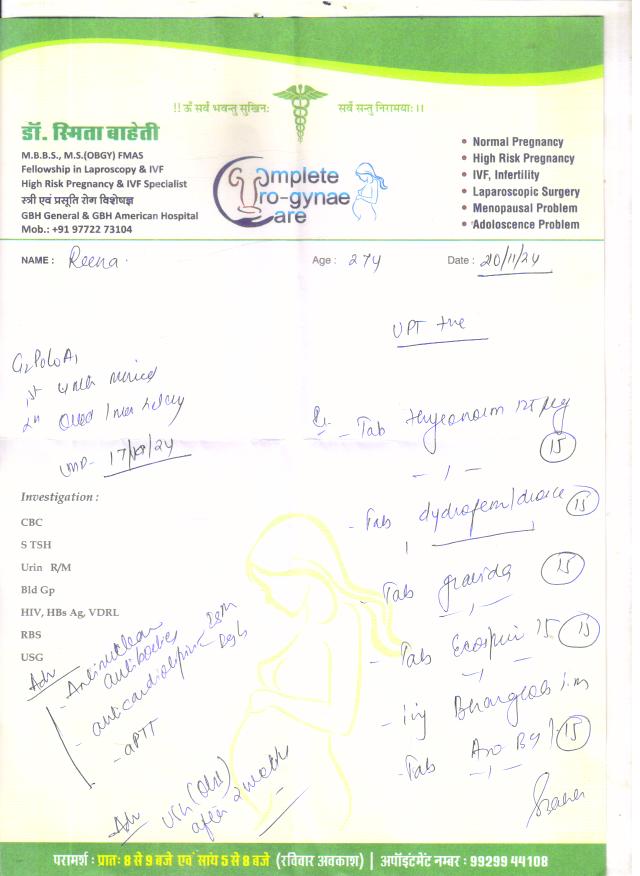 !! ॐ सर्वे भवन्तु सुखिनः सर्वे सन्तु निरामयाः ।।
डॉ. स्मिता बाहेती
M.B.B.S., M.S.(OBGY) FMAS
Fellowship in Laproscopy & IVF
High Risk Pregnancy & IVF Specialist
स्त्री एवं प्रसूति रोग विशेषज्ञ
GBH General & GBH American Hospital
Mob.: +91 97722 73104
Complete
Uro-gynae
Care
• Normal Pregnancy
• High Risk Pregnancy
• IVF, Infertility
• Laparoscopic Surgery
• Menopausal Problem
• Adoloscence Problem
NAME : Reena
Age : 27y
Date : 20/11/24
UPT +ve
G2P0L0A1
LMP- 17/10/24
Rx - Tab Thyronorm 125 µg
15
- Tab dydrofem/
15
- Tab gravida
15
- Tab Ecosprin 75
15
- inj i.m
- Tab
15
Investigation :
CBC
S TSH
Urin R/M
Bld Gp
HIV, HBs Ag, VDRL
RBS
USG
Adv
- Antinuclear
antibodies
- anticardiolipin IgM
IgG
- aPTT
Adv USG (OBS)
after 2 weeks
परामर्श : प्रातः 8 से 9 बजे एवं सांय 5 से 8 बजे (रविवार अवकाश) | अपॉइंटमेंट नम्बर : 99299 44108